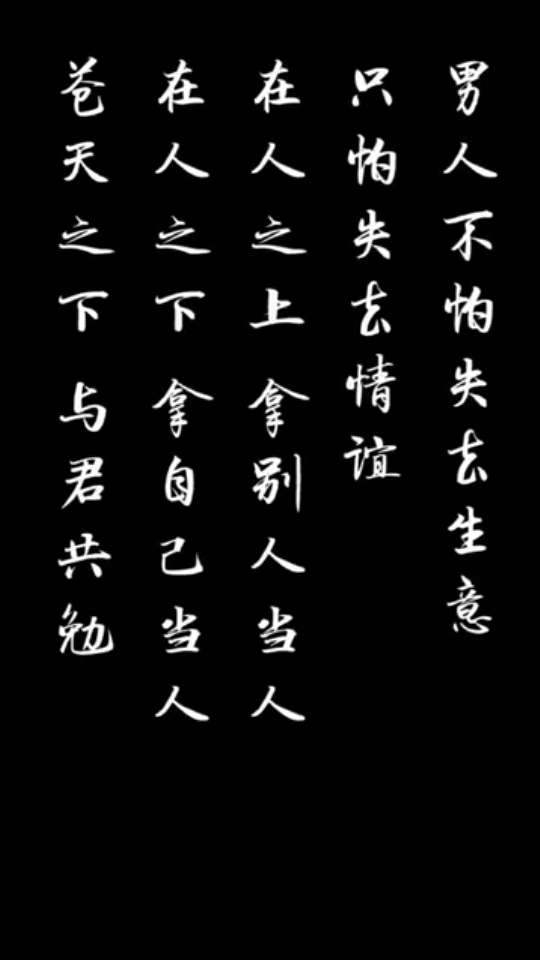 男人不怕失去生意
只怕失去情谊
在人之上 拿别人当人
在人之下 拿自己当人
苍天之下 与君共勉